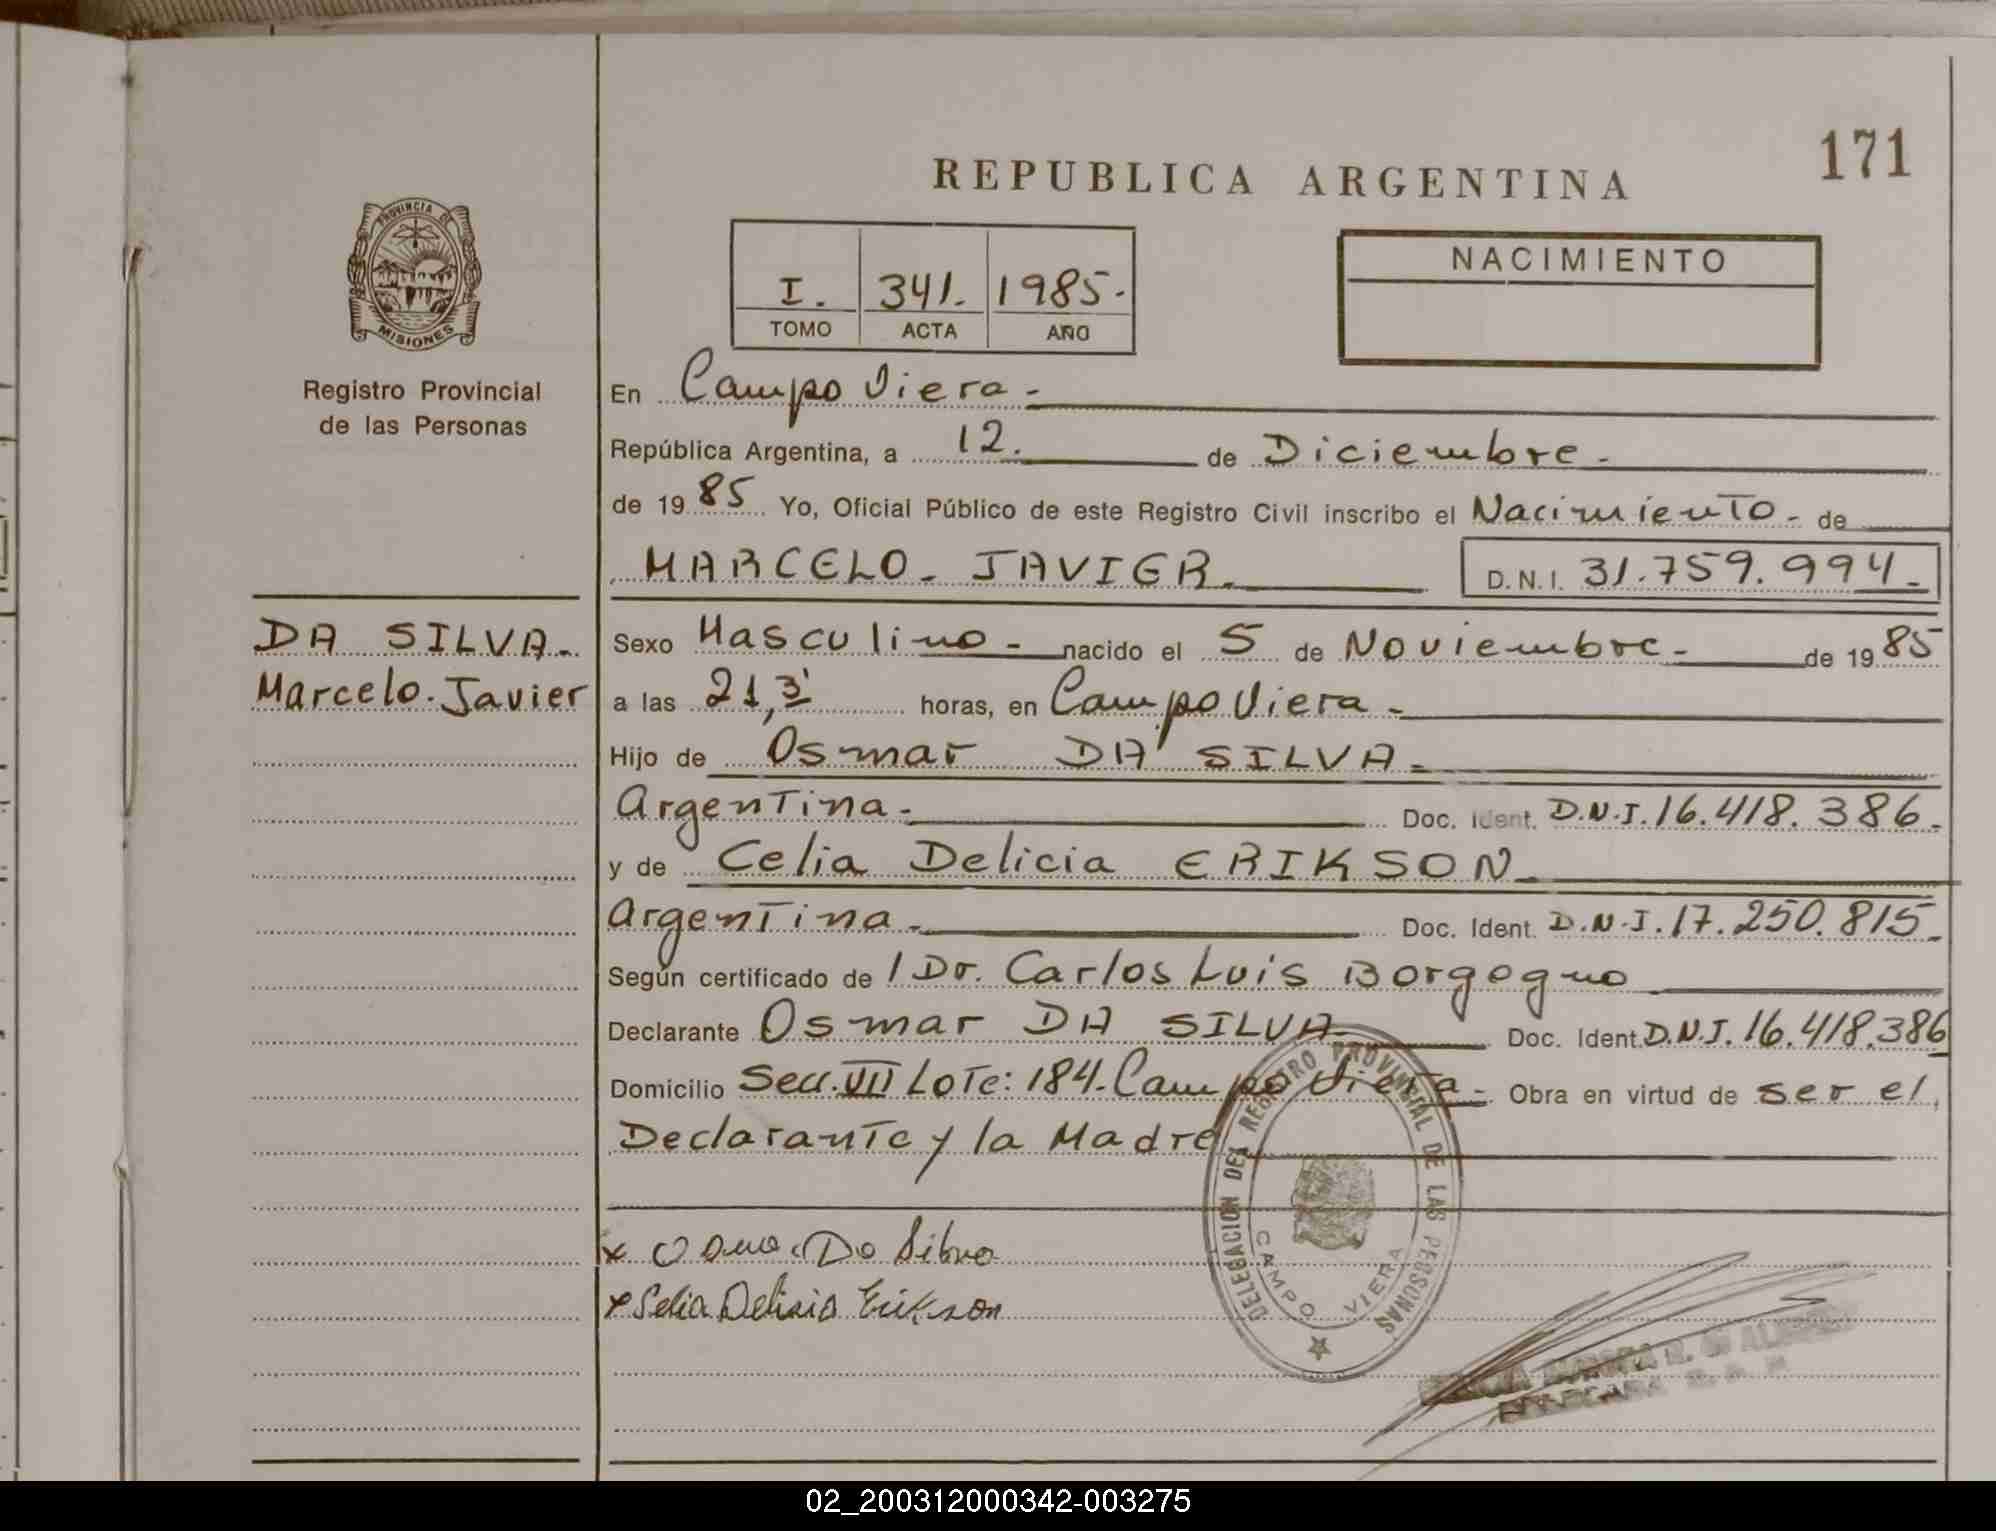 171
REPUBLICA ARGENTINA
PROVINCIA DE
MISIONES
Registro Provincial
de las Personas
I. 341. 1985.
TOMO ACTA AÑO
NACIMIENTO
En Campo Viera.
República Argentina, a 12. de Diciembre.
de 1985 Yo, Oficial Público de este Registro Civil inscribo el Nacimiento. de
MARCELO. JAVIER. D.N.I. 31.759.994.
DA SILVA.
Marcelo. Javier
Sexo Masculino. nacido el 5 de Noviembre. de 1985
a las 21,3' horas, en Campo Viera.
Hijo de Osmar DA SILVA.
Argentina. Doc. Ident. D.N.I. 16.418.386.
y de Celia Delicia ERIKSON
Argentina. Doc. Ident. D.N.I. 17.250.815.
Según certificado de / Dr. Carlos Luis Borgogno
Declarante Osmar DA SILVA Doc. Ident. D.N.I. 16.418.386
Domicilio Secc. VII Lote: 184. Campo Viera. Obra en virtud de ser el
Declarante y la Madre
DELEGACION DEL REGISTRO PROVINCIAL DE LAS PERSONAS
CAMPO VIERA
x Osma Da Silva
x Selia Delisia Erikson
02_200312000342-003275